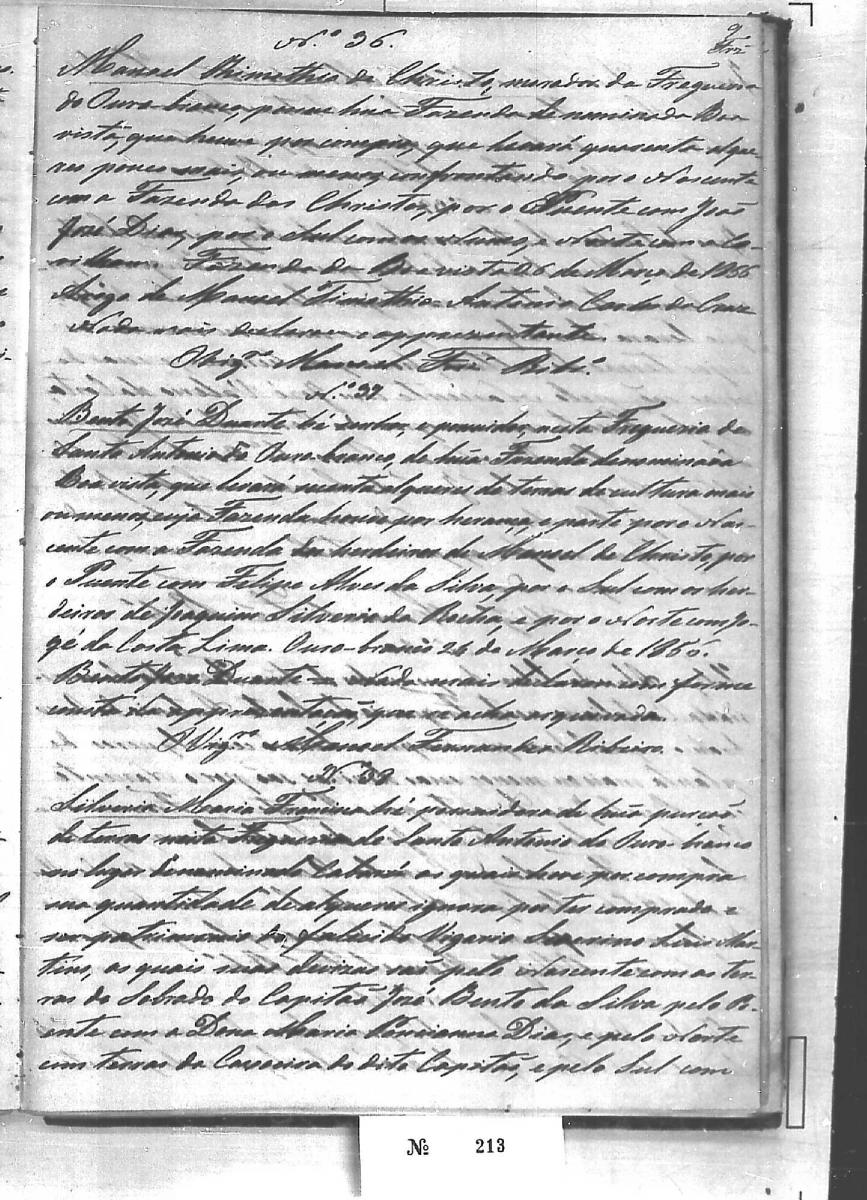 N.º 36.
Manoel Thimothio de Christo, morador da Freguesia
do Ouro branco, possue huã Fazenda denominada Boa
vista, que houve por compra, que levará quarenta alquei-
res pouco mais, ou menos, confrontando por o Nascente
com a Fazenda dos Christos, por o Puente com João
José Dias, por o Sul com os Nunes, e Norte com a Ca-
Fazenda da Boa vista 26 de Março de 1856
Arogo de Manoel Timothio Antonio Cardo da Cruz
Nada mais declarou o appresentante.
O Vigr.º Manoel Frz Ribr.º
N.º 37
Bento José Duarte hé senhor, e possuidor, nesta Freguesia de
Santo Antonio do Ouro-branco, de huã Fazenda denominada
Boa vista, que levará alqueires de terras de cultura mais
ou menos, cuja Fazenda houve por herança, e parte por o Nas-
cente com a Fazenda dos herdeiros de Manoel de Christo, por
o Puente com Felipe Alves da Silva, por o Sul com os her-
deiros de Joaquim Silverio da Rocha, e por o Norte com Jo-
zé da Costa Lima. Ouro-branco 26 de Março de 1856.
Bento José Duarte = Nada mais declarou como
consta da appresentação, que se acha arquivada.
O Vigr.º Manoel Fernandes Ribeiro.
N.º 38
Silveria Maria Francisca hé possuidora de huã porção
de terras nesta Freguesia de Santo Antonio do Ouro-branco
no lugar denominado as quais houve por compra
sua quantidade de alqueires ignora por ter comprado e
ser patrimonio do falecido Vigario Severino Luis Mar-
tins, as quais suas divizas são pelo Nascente com as ter-
ras do Sobrado do Capitão José Bento da Silva pelo Po-
ente com a Dona Maria Dias, e pelo Norte
com terras da do dito Capitão, e pelo Sul com
Nº 213